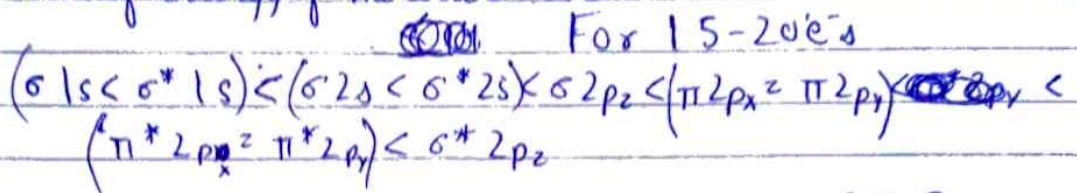 For 15-20 e⁻s
(σ 1s < σ* 1s) < (σ 2s < σ* 2s) < σ 2pz < (π 2px = π 2py) <
(π* 2px = π* 2py) < σ* 2pz